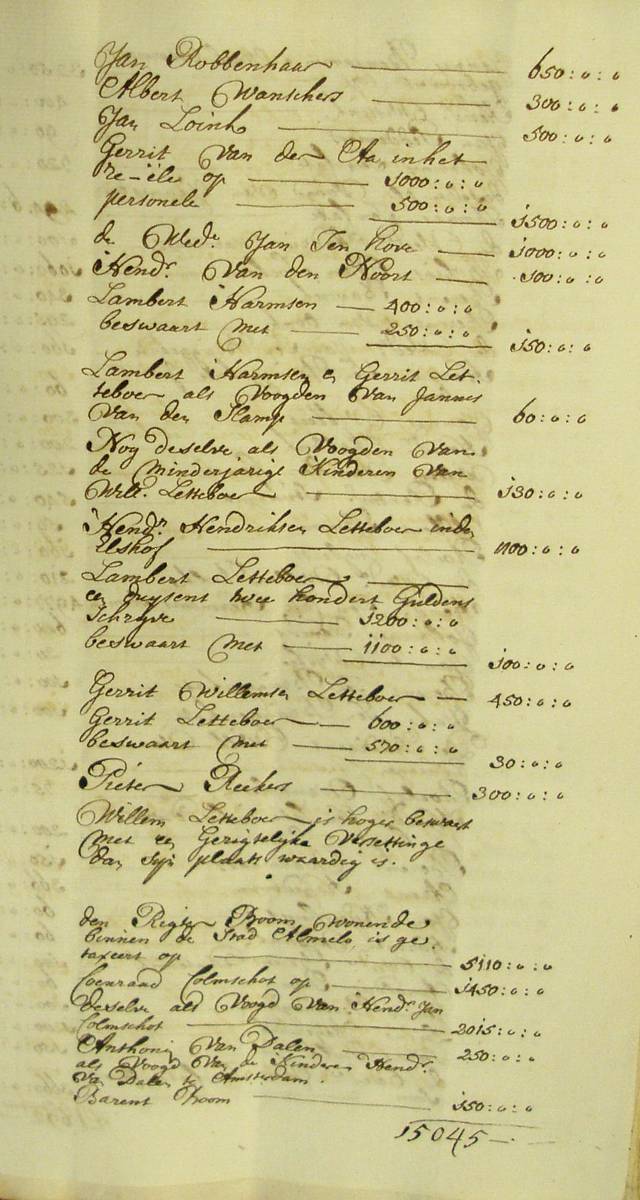 Jan Robbenhaar — 650:0:0
Albert Wanschers — 300:0:0
Jan Loink — 500:0:0
Gerrit Van der Aa in het
re-ële op — 1000:0:0
personele — 500:0:0 1500:0:0
de Wede Jan Ten hove — 1000:0:0
Hendr. Van den Noort — 100:0:0
Lambert Harmsen — 400:0:0
beswaart met — 250:0:0 150:0:0
Lambert Harmsen en Gerrit Let-
teboer als Voogden Van Jannes
Van den Stamp — 60:0:0
Nog deselve als Voogden Van
de Minderjarige Kinderen Van
Will. Letteboer — 130:0:0
Hendr. Hendriksen Letteboer inde
Elshof — 1100:0:0
Lambert Letteboer —
een duysent twee hondert Guldens
Schryve — 1200:0:0
beswaart met — 1100:0:0 100:0:0
Gerrit Willemsen Letteboer — 450:0:0
Gerrit Letteboer — 600:0:0
beswaart met — 570:0:0 30:0:0
Pieter Reekers — 300:0:0
Willem Letteboer is hoger beswaart
met een Gerigtelijke Versettinge
dan syn plaats waardig is.
den Rigter Boom wonende
binnen de Stad Almelo is ge-
taxeert op — 5110:0:0
Coenraad Colmschot op — 1450:0:0
deselve als Voogd Van Hendr. Jan
Colmschot — 2015:0:0
Anthonij Van Dalen — 250:0:0
als Voogd Van de Kinderen Hendr.
Van Dalen te Amsterdam.
Barent Boom — 150:0:0
15045 —